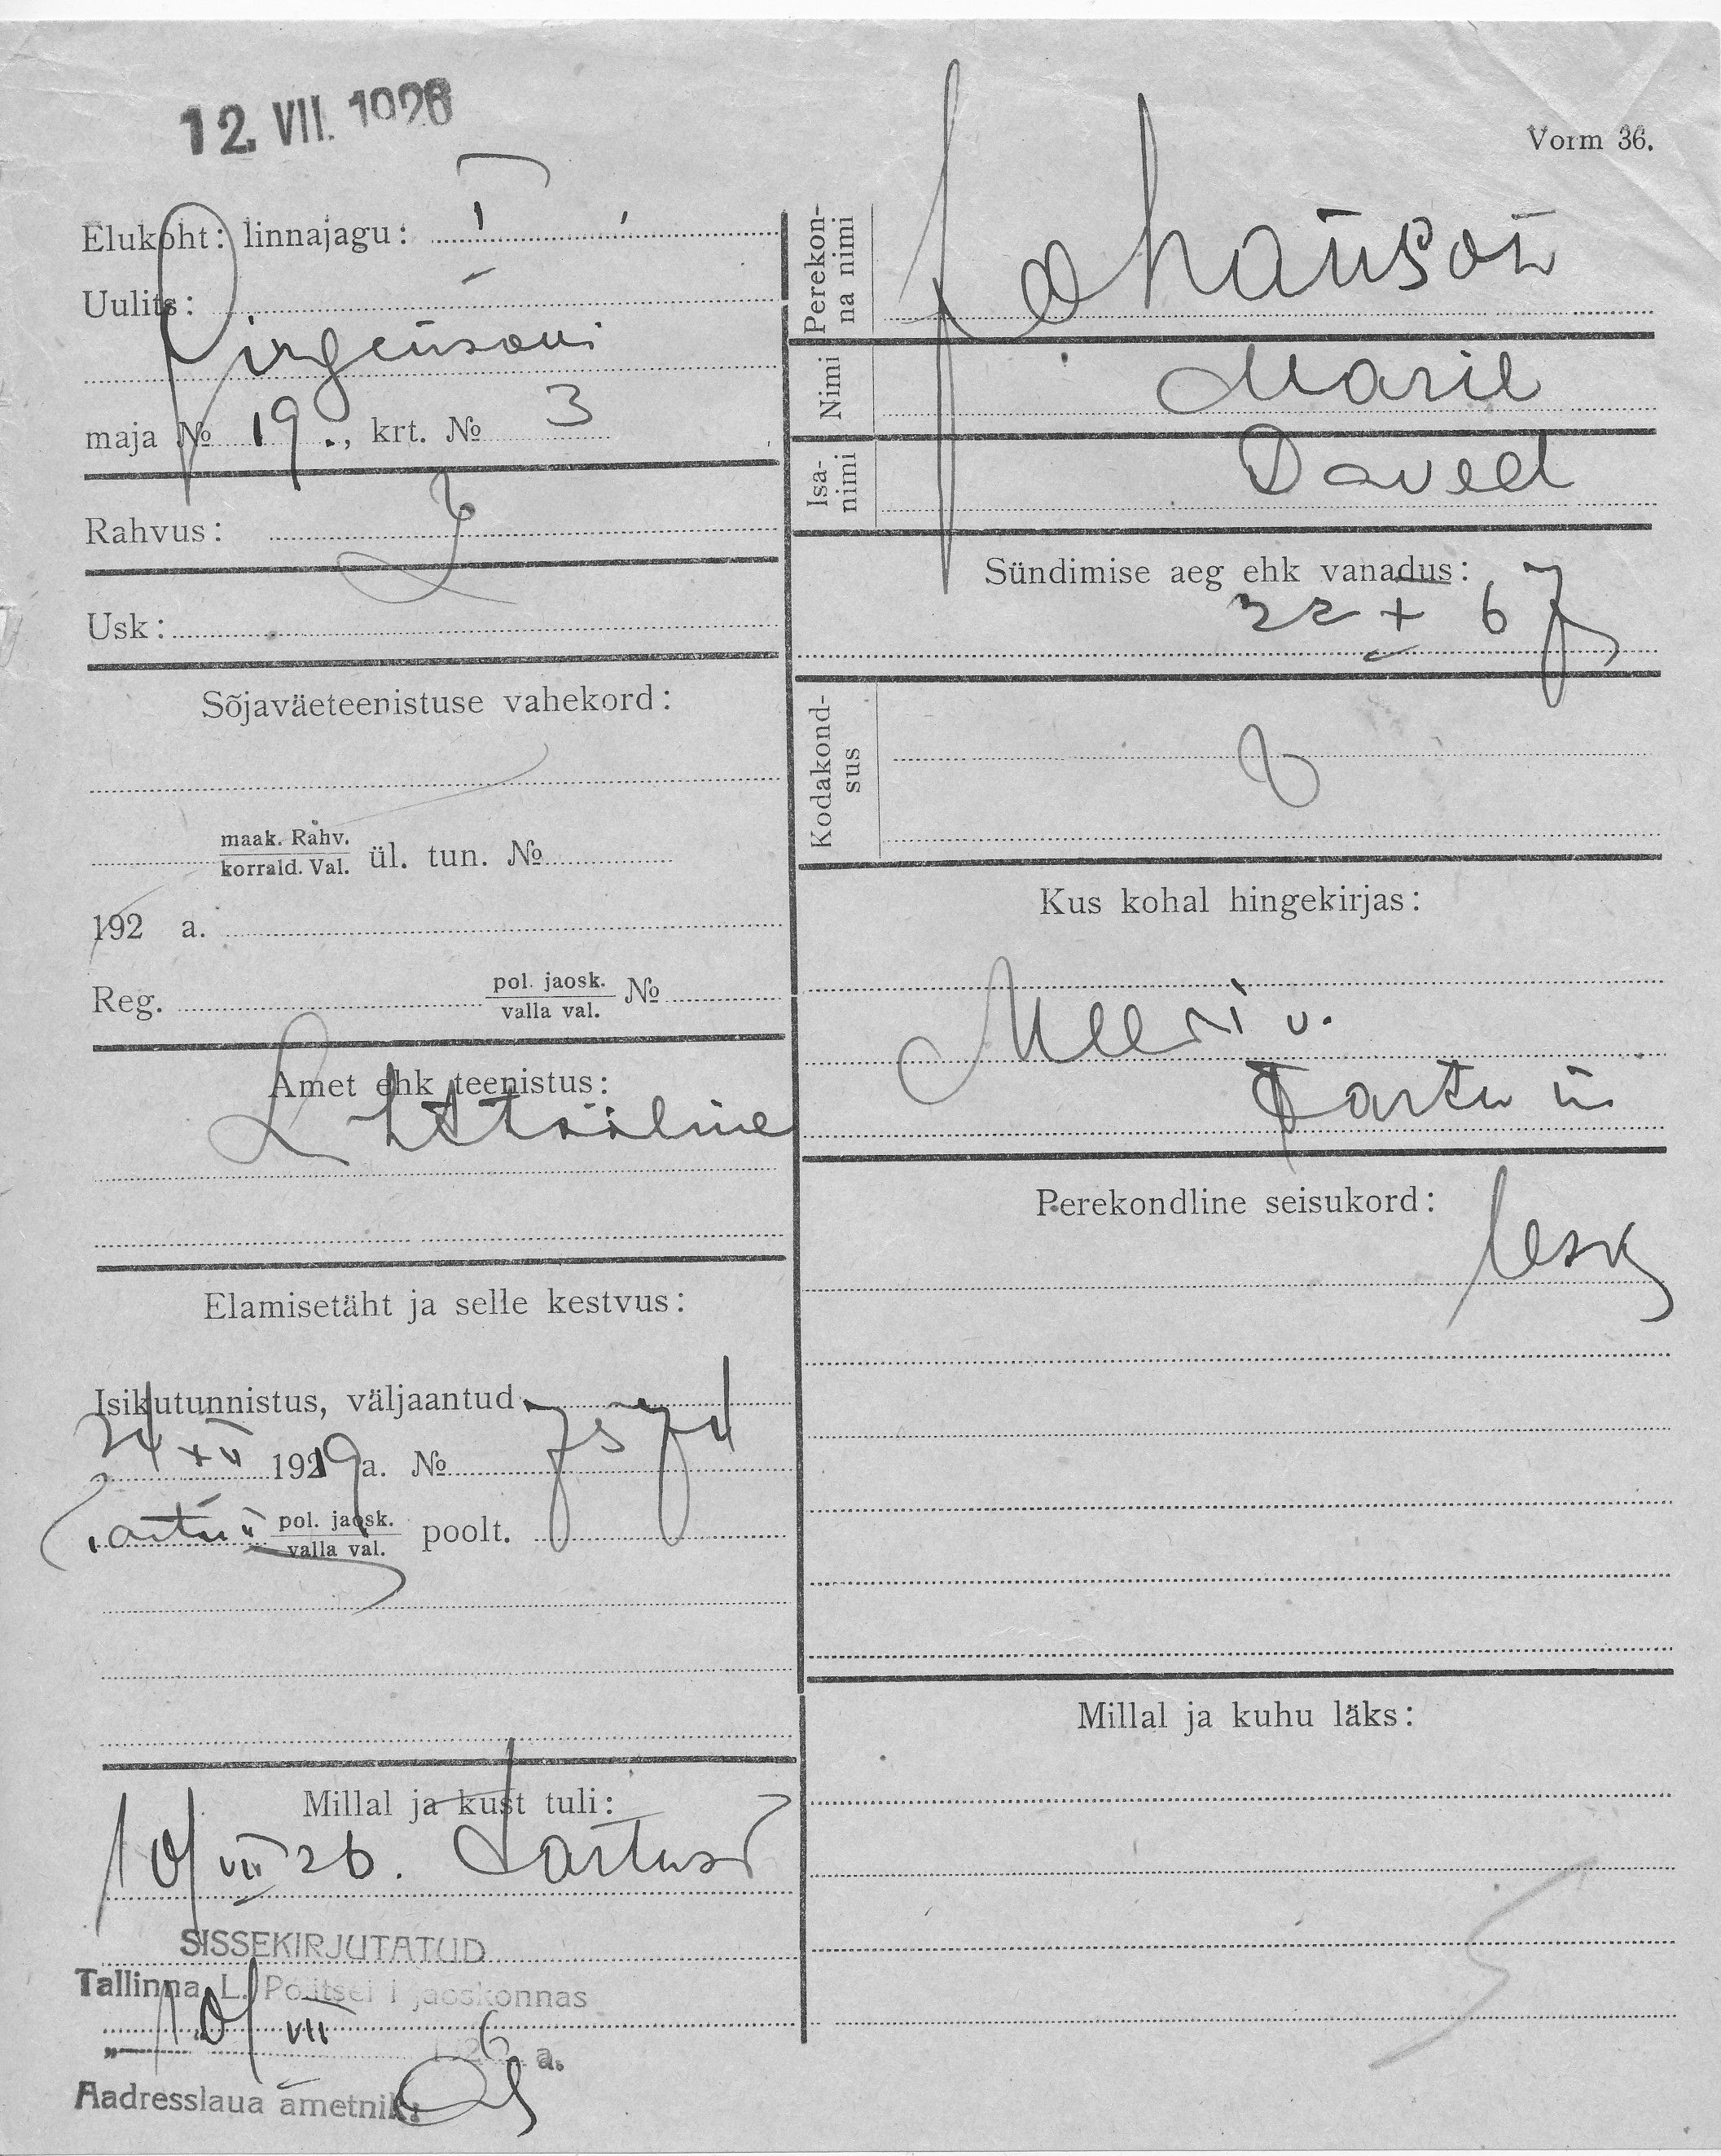 12. VII. 1926
Vorm 36.
Elukoht: linnajagu: I
Uulits:
Jürgensoni
maja № 19., krt. № 3
Rahvus:
Usk:
Sõjaväeteenistuse vahekord:
maak. Rahv.
korrald. Val. ül. tun. №
192 a.
Reg. pol. jaosk.
valla val. №
Amet ehk teenistus:
Lihttööline
Elamisetäht ja selle kestvus:
Isikutunnistus, väljaantud
24 XII 1919 a. № 7574
Tartu pol. jaosk.
valla val. poolt.
Millal ja kust tuli:
10/VII 26. Tartust
SISSEKIRJUTATUD
Tallinna L. Politsei I jaoskonnas
"10/ VII 1926 a.
Aadresslaua ametnik:
Perekonna nimi
Johanson
Nimi
Marie
Isanimi
David
Sündimise aeg ehk vanadus:
22 X 67
Kodakondsus
Kus kohal hingekirjas:
Meeri v.
Tartu m
Perekondline seisukord:
lesk
Millal ja kuhu läks: